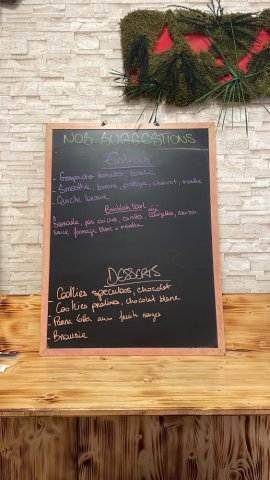 NOS SUGGESTIONS
Entrées
- Gaspacho tomates, basilic
- Smoothie, banane, pastèque, menthe
- Quiche lorraine
Buddah bowl
Semoule, pois chiches, carottes, raisin
sauce fromage blanc & menthe
DESSERTS
- Cookies spéculoos, chocolat
- Cookies pralines, chocolat blanc
- Panna Cotta aux fruits rouges
- Brownie